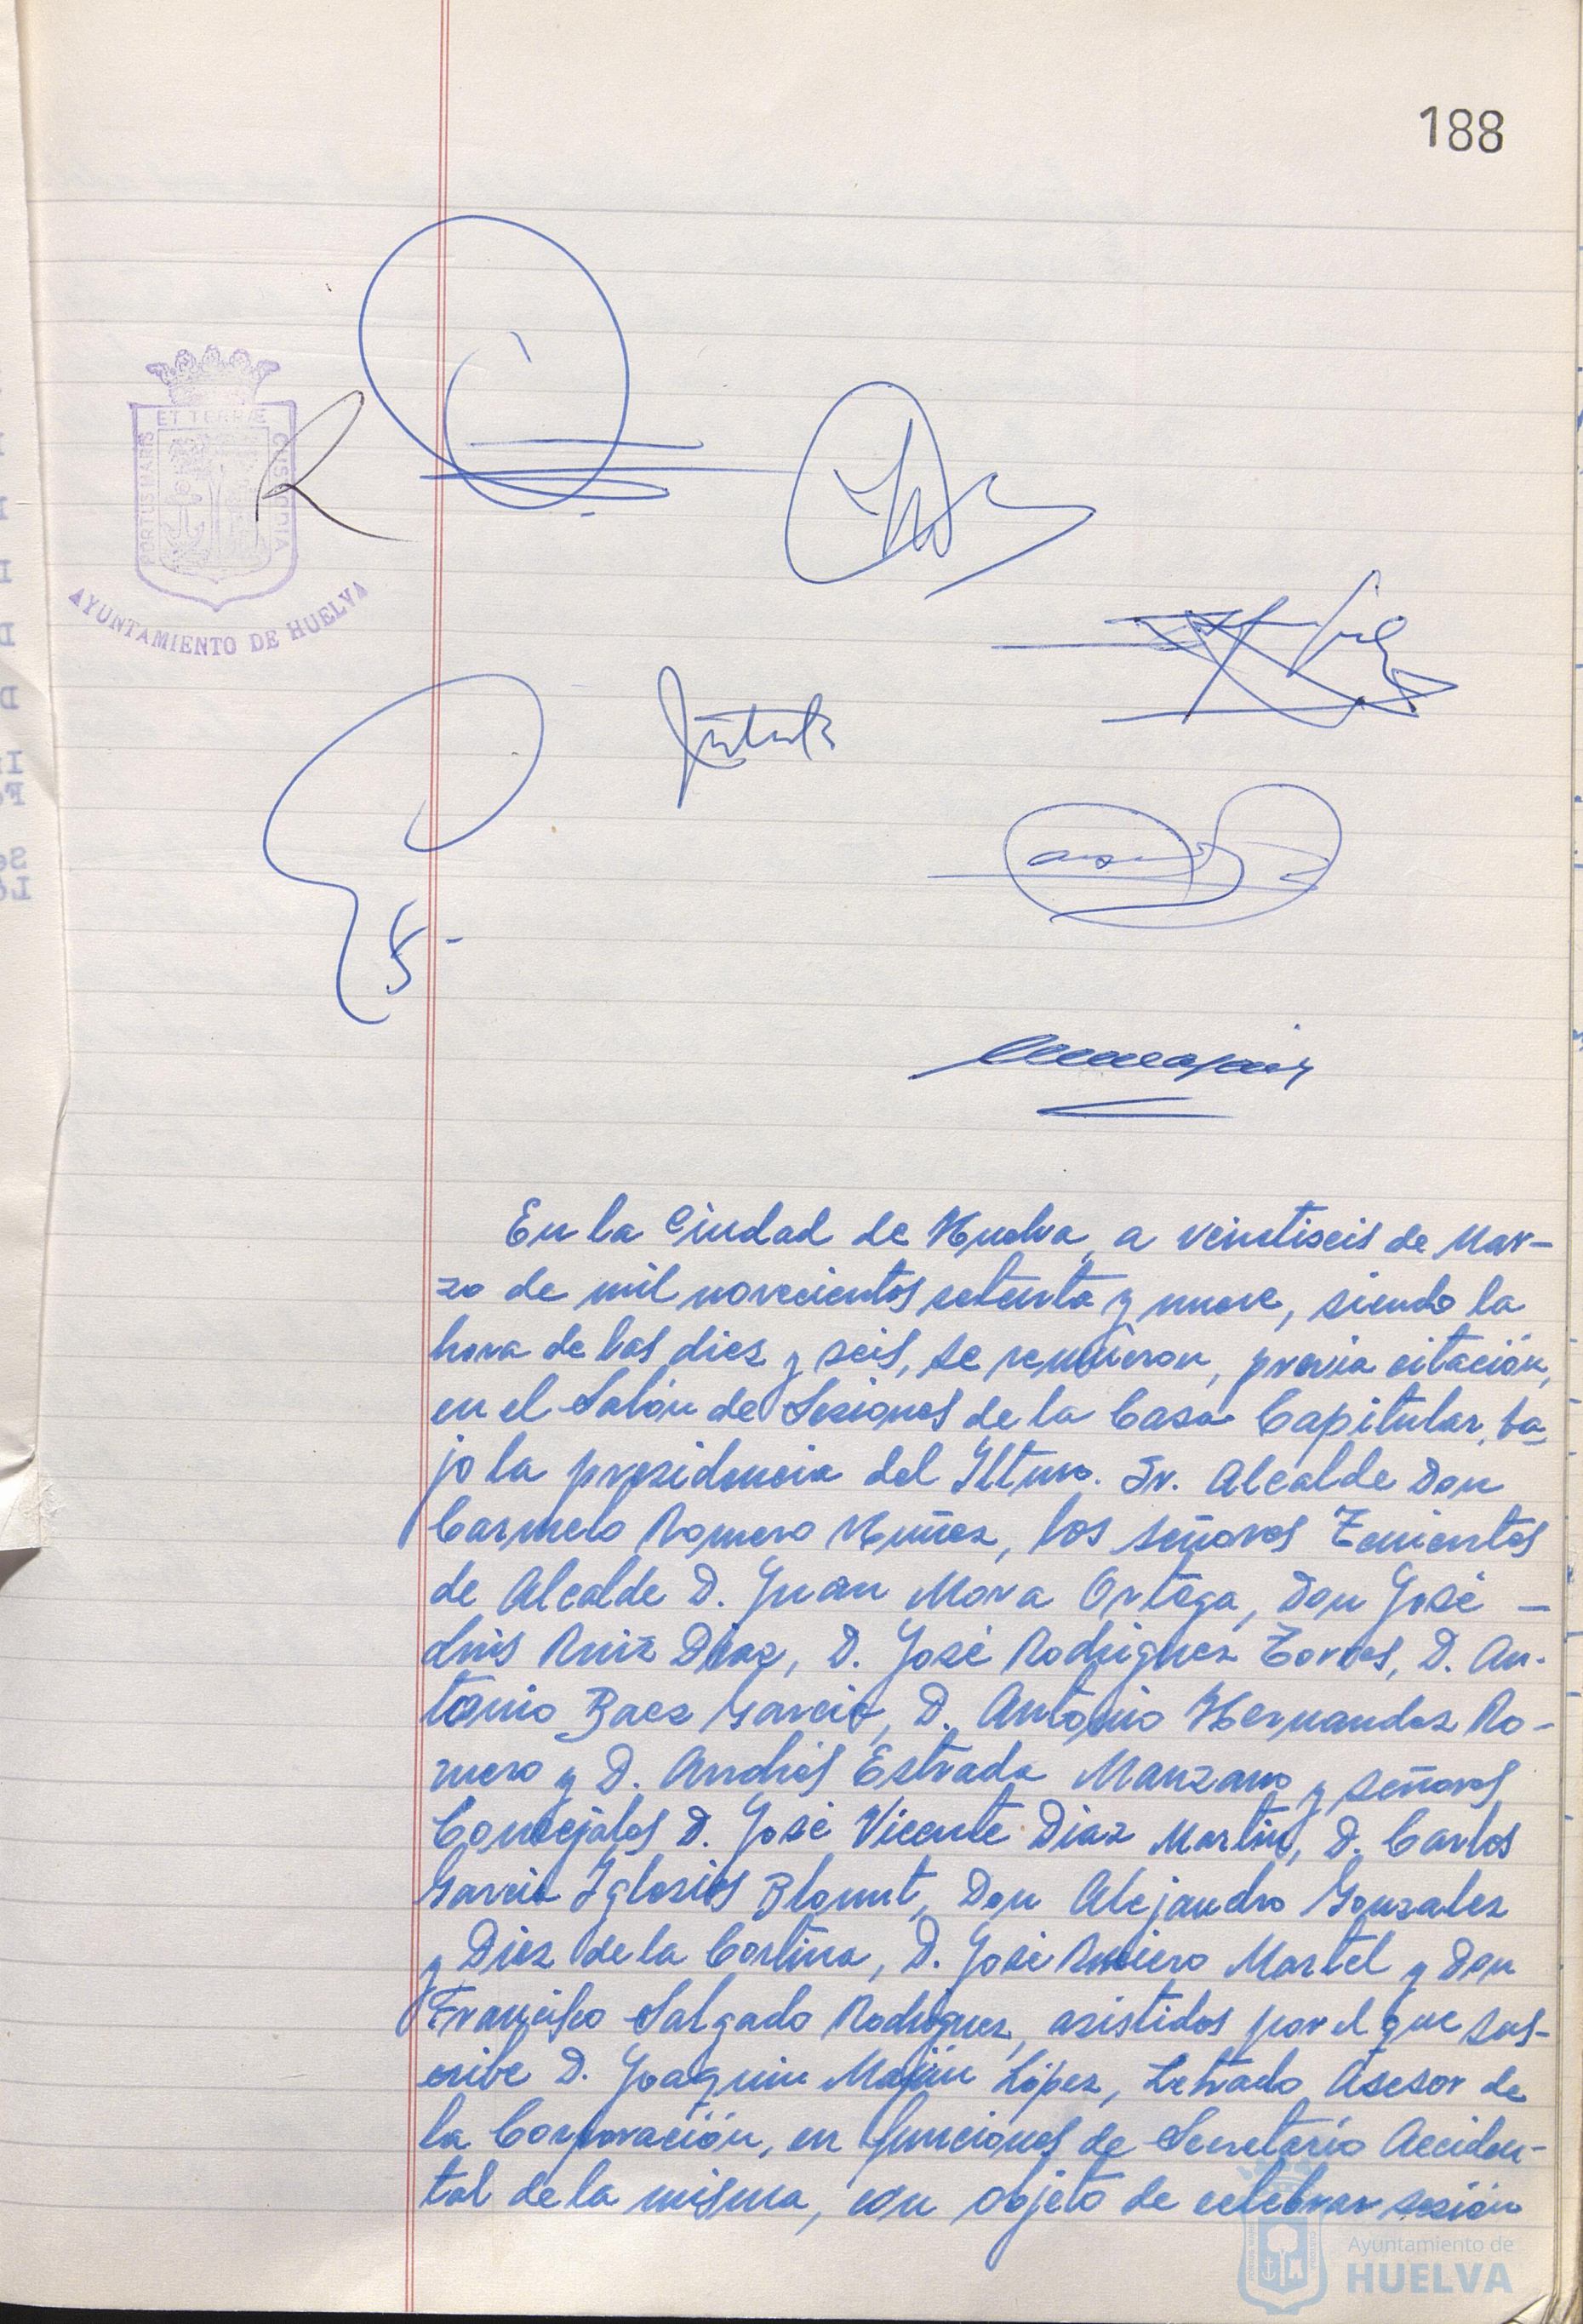 188
ET TERRÆ
PORTUS MARIS
CUSTODIA
AYUNTAMIENTO DE HUELVA
En la Ciudad de Huelva, a veintiseis de Mar-
zo de mil novecientos setenta y nueve, siendo la
hora de las dies y seis, se reunieron, previa citación,
en el Salón de Sesiones de la Casa Capitular, ba-
jo la presidencia del Iltmo. Sr. Alcalde Don
Carmelo Romero Nuñez, los señores Tenientes
de Alcalde D. Juan Mora Ortega, Don José -
Luis Ruiz Diaz, D. José Rodriguez Torres, D. An-
tonio Baez Garcia, D. Antonio Hernandez Ro-
mero y D. Andrés Estrada Manzano y señores
Concejales D. José Vicente Diaz Martin, D. Carlos
Garcia Iglesias Blount, Don Alejandro Gonzalez
y Diez de la Cortina, D. José Martel y Don
Francisco Salgado Rodriguez, asistidos por el que sus-
cribe D. Joaquin López, Letrado Asesor de
la Corporación, en funciones de Secretario Acciden-
tal de la misma, con objeto de celebrar sesión
Ayuntamiento de
HUELVA